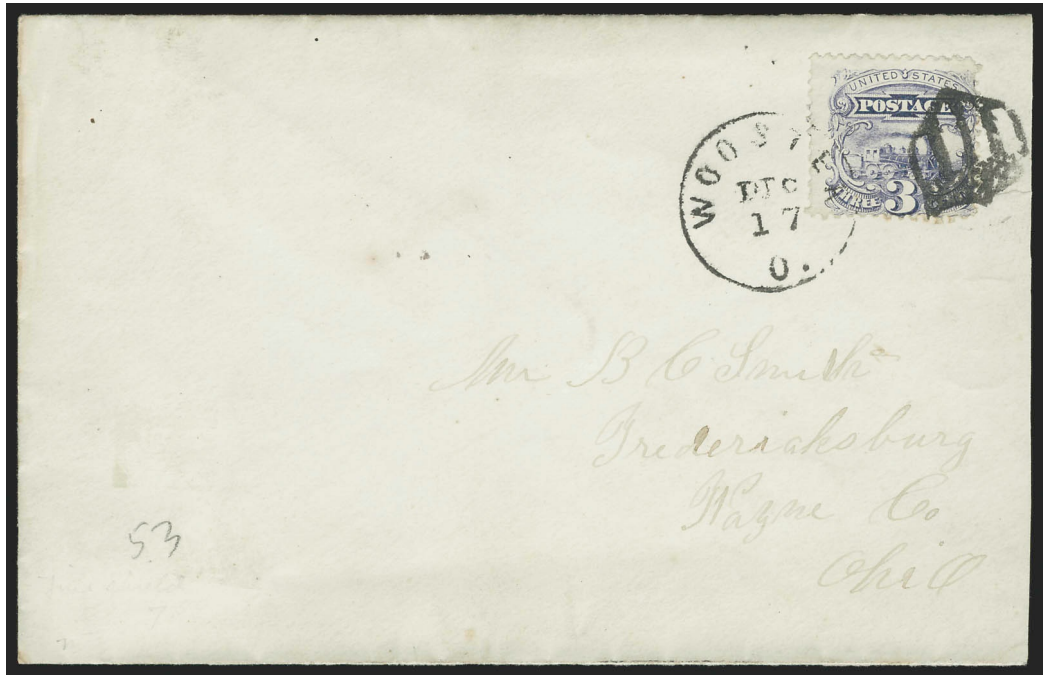 UNITED STATES
POSTAGE
THREE 3
WOOSTER
DEC
17
O.
Mr B C Smith
Fredericksburg
Wayne Co
Ohio
53